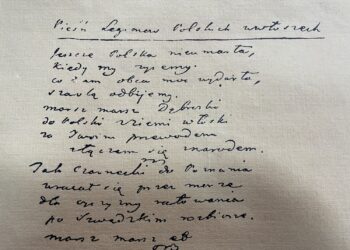 Pieśń Legionów Polskich we Włoszech
Jeszcze Polska nie umarła,
kiedy my żyjemy.
co nam obca moc wydarła,
szablą odbijemy.
marsz marsz Dąbroski
do Polski z ziemi włoski
za Twoim przewodem
złączem się z narodem.
Jak Czarnecki do Poznania
wracał się przez morze
dla ojczyzny ratowania
po szwedzkim rozbiorze.
marsz marsz etc